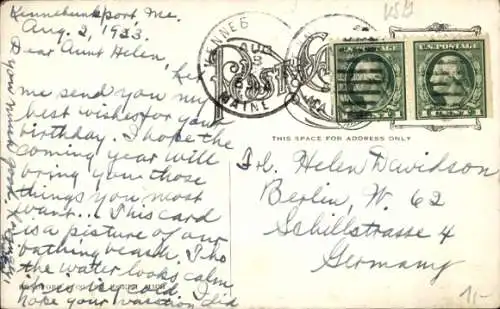 Kennebunkport, Me.
Aug. 2, 1933.
Dear Aunt Helen, Let
me send you my
best wishes for your
birthday. I hope the
coming year will
bring you those
things you most
want... This card
is a picture of our
bathing beach. Tho
the water looks calm
it is icy cold
hope your vacation did
you much good.
KENNEB
AUG
3
MAINE
Post Card
U.S. POSTAGE
1 CENT 1
U.S. POSTAGE
1 CENT 1
THIS SPACE FOR ADDRESS ONLY
Frl. Helen Davidson
Berlin, W. 62
Schillstrasse 4
Germany
1,-